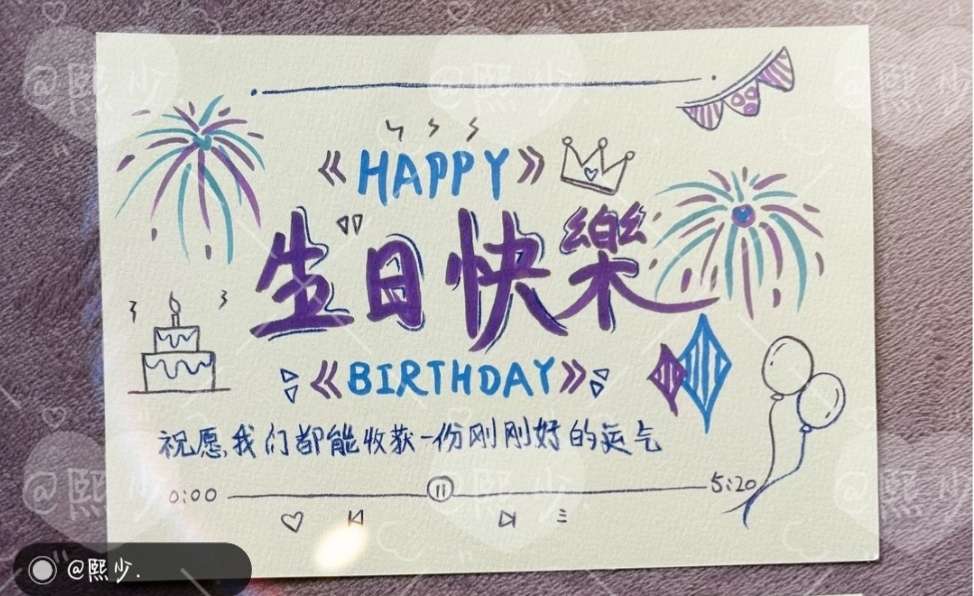 《HAPPY》
生日快樂
《BIRTHDAY》
祝愿我们都能收获一份刚刚好的运气
0:00 5:20
@熙少.
@熙少.
@熙少.
@熙少.
@熙少.
@熙少.
@熙少.